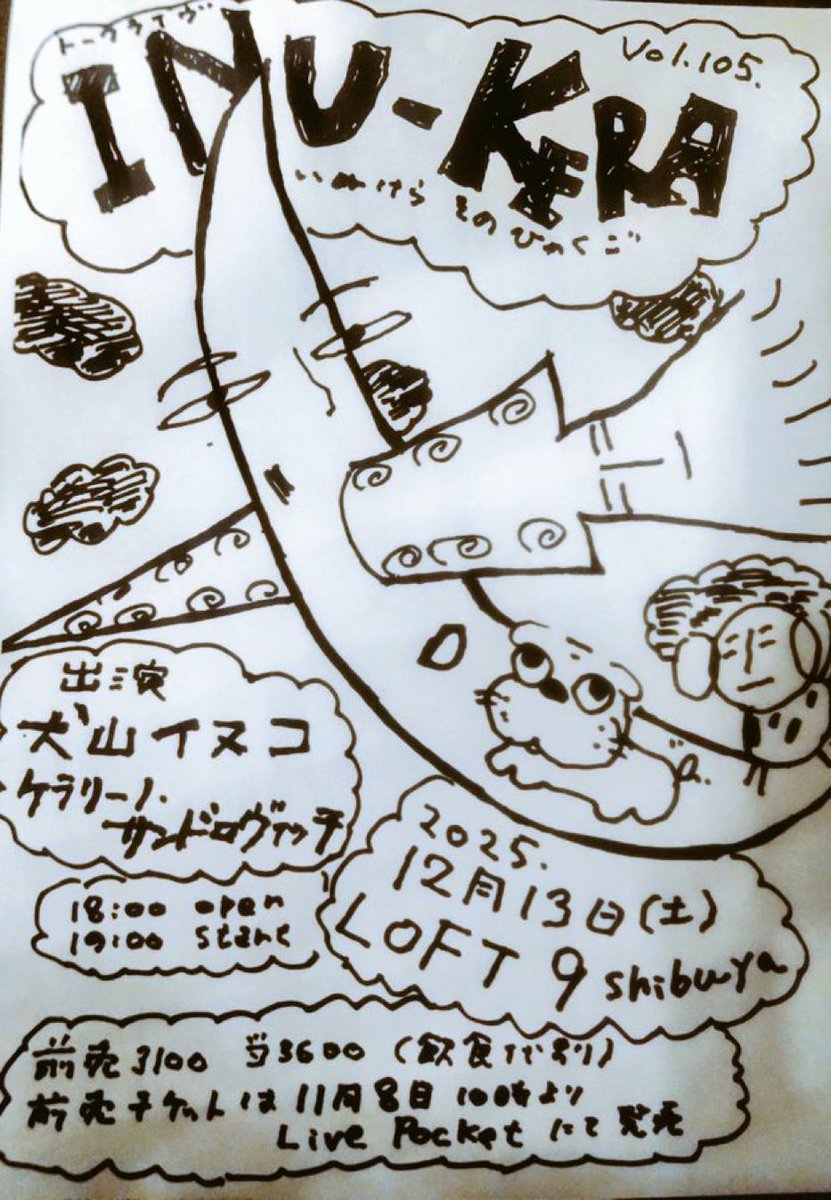 トークライヴ
INU-KERA
Vol.105.
いぬけら そのひゃくご
出演
犬山イヌコ
ケラリーノ・
サンドロヴィッチ
18:00 open
19:00 start
2025.
12月13日(土)
LOFT 9 shibuya
前売3100 当3600 (飲食代別)
前売チケットは11月8日 10時より
Live Pocketにて発売